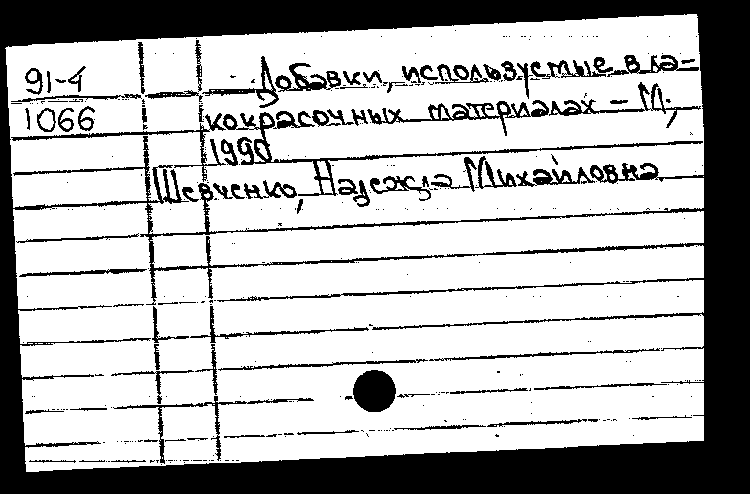 91-4 Добавки, используемые в ла-
1066 кокрасочных материалах - М;
1990
Шевченко, Надежда Михайловна.